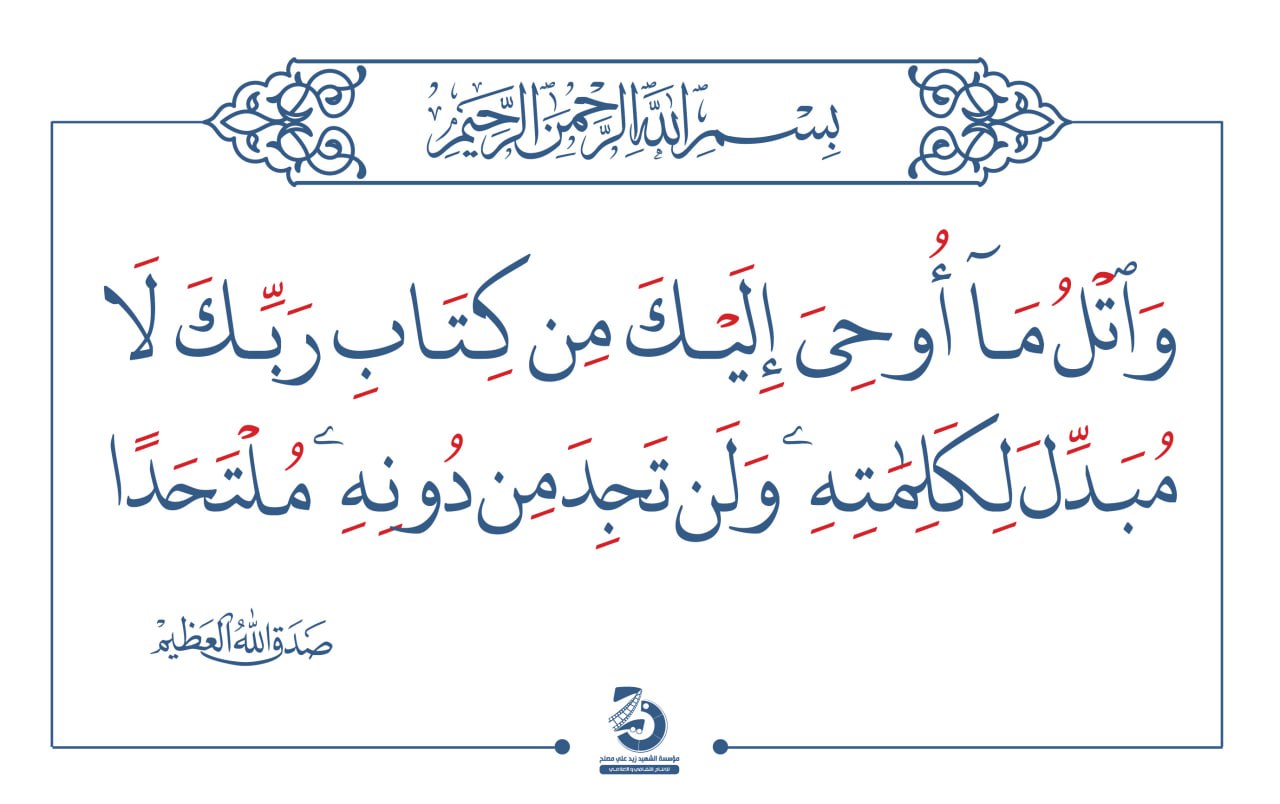 بِسْمِ اللَّهِ الرَّحْمَٰنِ الرَّحِيمِ
وَٱتْلُ مَآ أُوحِىَ إِلَيْكَ مِن كِتَابِ رَبِّكَ لَا
مُبَدِّلَ لِكَلِمَٰتِهِۦ وَلَن تَجِدَ مِن دُونِهِۦ مُلْتَحَدًا
صَدَقَ اللهُ العَظِيمْ
مؤسسة الشهيد زيد علي مصلح
للإنتاج الثقافي والإعلامي